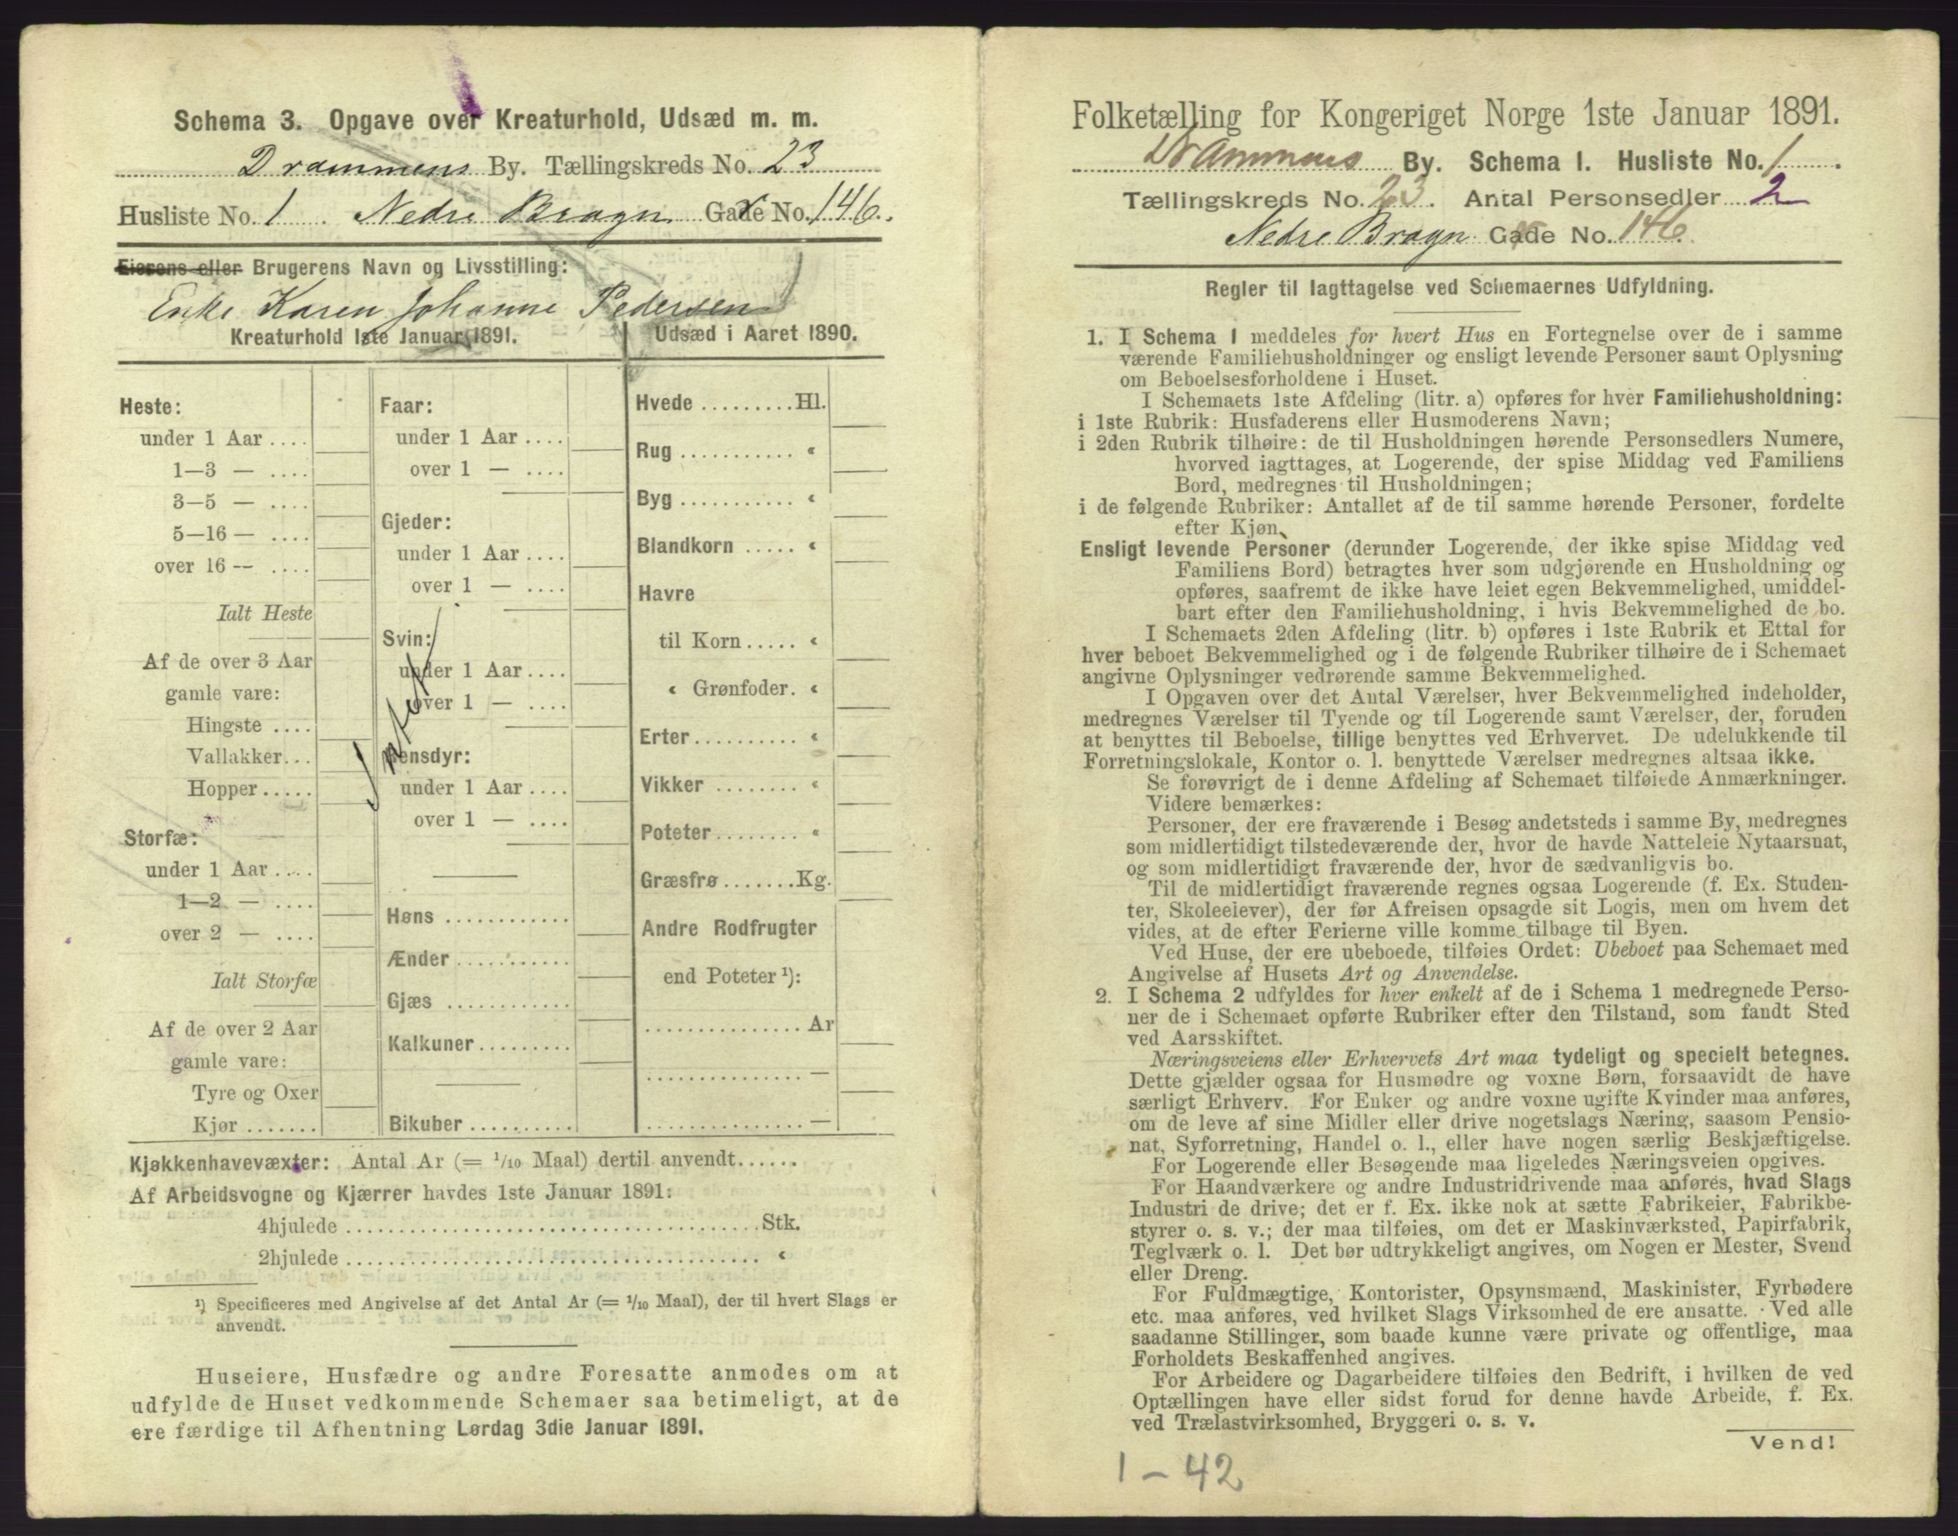 Schema 3. Opgave over Kreaturhold, Udsæd m. m.
Drammens By. Tællingskreds No. 23
Husliste No. 1 Nedre Bragn Gade No. 146.
Eierens eller Brugerens Navn og Livsstilling:
Enke Karen Johanne Pedersen
Kreaturhold 1ste Januar 1891.
Heste:
under 1 Aar ....
1—3 — ....
3—5 — ....
5—16 — ....
over 16 — ....
Ialt Heste
Af de over 3 Aar
gamle vare:
Hingste ....
Vallakker...
Hopper.....
Storfæ:
under 1 Aar ....
1—2 — ....
over 2 — ....
Ialt Storfæ
Af de over 2 Aar
gamle vare:
Tyre og Oxer
Kjør .......
Faar:
under 1 Aar ....
over 1 — ....
Gjeder:
under 1 Aar ....
over 1 — ....
Svin:
under 1 Aar ....
over 1 — ....
Intet
Rensdyr:
under 1 Aar ....
over 1 — ....
Høns ............
Ænder ...........
Gjæs ............
Kalkuner.........
Bikuber ..........
Udsæd i Aaret 1890.
Hvede .........Hl.
Rug ........... "
Byg ........... "
Blandkorn ..... "
Havre
til Korn ..... "
" Grønfoder. "
Erter.......... "
Vikker ........ "
Poteter........ "
Græsfrø .......Kg.
Andre Rodfrugter
end Poteter ¹):
............... Ar
............... —
............... —
Kjøkkenhavevæxter: Antal Ar (= 1/10 Maal) dertil anvendt......
Af Arbeidsvogne og Kjærrer havdes 1ste Januar 1891:
4hjulede ........................................Stk.
2hjulede ........................................ "
¹) Specificeres med Angivelse af det Antal Ar (= 1/10 Maal), der til hvert Slags er
anvendt.
Huseiere, Husfædre og andre Foresatte anmodes om at
udfylde de Huset vedkommende Schemaer saa betimeligt, at de
ere færdige til Afhentning Lørdag 3die Januar 1891.
Folketælling for Kongeriget Norge 1ste Januar 1891.
Drammens By. Schema I. Husliste No. 1.
Tællingskreds No. 23. Antal Personsedler 2
Nedre Bragn Gade No. 146.
Regler til Iagttagelse ved Schemaernes Udfyldning.
1. I Schema 1 meddeles for hvert Hus en Fortegnelse over de i samme
værende Familiehusholdninger og ensligt levende Personer samt Oplysning
om Beboelsesforholdene i Huset.
I Schemaets 1ste Afdeling (litr. a) opføres for hver Familiehusholdning:
i 1ste Rubrik: Husfaderens eller Husmoderens Navn;
i 2den Rubrik tilhøire: de til Husholdningen hørende Personsedlers Numere,
hvorved iagttages, at Logerende, der spise Middag ved Familiens
Bord, medregnes til Husholdningen;
i de følgende Rubriker: Antallet af de til samme hørende Personer, fordelte
efter Kjøn.
Ensligt levende Personer (derunder Logerende, der ikke spise Middag ved
Familiens Bord) betragtes hver som udgjørende en Husholdning og
opføres, saafremt de ikke have leiet egen Bekvemmelighed, umiddel-
bart efter den Familiehusholdning, i hvis Bekvemmelighed de bo.
I Schemaets 2den Afdeling (litr. b) opføres i 1ste Rubrik et Ettal for
hver beboet Bekvemmelighed og i de følgende Rubriker tilhøire de i Schemaet
angivne Oplysninger vedrørende samme Bekvemmelighed.
I Opgaven over det Antal Værelser, hver Bekvemmelighed indeholder,
medregnes Værelser til Tyende og til Logerende samt Værelser, der, foruden
at benyttes til Beboelse, tillige benyttes ved Erhvervet. De udelukkende til
Forretningslokale, Kontor o. l. benyttede Værelser medregnes altsaa ikke.
Se forøvrigt de i denne Afdeling af Schemaet tilføiede Anmærkninger.
Videre bemærkes:
Personer, der ere fraværende i Besøg andetsteds i samme By, medregnes
som midlertidigt tilstedeværende der, hvor de havde Natteleie Nytaarsnat,
og som midlertidigt fraværende der, hvor de sædvanligvis bo.
Til de midlertidigt fraværende regnes ogsaa Logerende (f. Ex. Studen-
ter, Skoleelever), der før Afreisen opsagde sit Logis, men om hvem det
vides, at de efter Ferierne ville komme tilbage til Byen.
Ved Huse, der ere ubeboede, tilføies Ordet: Ubeboet paa Schemaet med
Angivelse af Husets Art og Anvendelse.
2. I Schema 2 udfyldes for hver enkelt af de i Schema 1 medregnede Perso-
ner de i Schemaet opførte Rubriker efter den Tilstand, som fandt Sted
ved Aarsskiftet.
Næringsveiens eller Erhvervets Art maa tydeligt og specielt betegnes.
Dette gjælder ogsaa for Husmødre og voxne Børn, forsaavidt de have
særligt Erhverv. For Enker og andre voxne ugifte Kvinder maa anføres,
om de leve af sine Midler eller drive nogetslags Næring, saasom Pensio-
nat, Syforretning, Handel o. l., eller have nogen særlig Beskjæftigelse.
For Logerende eller Besøgende maa ligeledes Næringsveien opgives.
For Haandværkere og andre Industridrivende maa anføres, hvad Slags
Industri de drive; det er f. Ex. ikke nok at sætte Fabrikeier, Fabrikbe-
styrer o. s. v.; der maa tilføies, om det er Maskinværksted, Papirfabrik,
Teglværk o. l. Det bør udtrykkeligt angives, om Nogen er Mester, Svend
eller Dreng.
For Fuldmægtige, Kontorister, Opsynsmænd, Maskinister, Fyrbødere
etc. maa anføres, ved hvilket Slags Virksomhed de ere ansatte. Ved alle
saadanne Stillinger, som baade kunne være private og offentlige, maa
Forholdets Beskaffenhed angives.
For Arbeidere og Dagarbeidere tilføies den Bedrift, i hvilken de ved
Optællingen have eller sidst forud for denne havde Arbeide, f. Ex.
ved Trælastvirksomhed, Bryggeri o. s. v.
Vend!
1 – 42